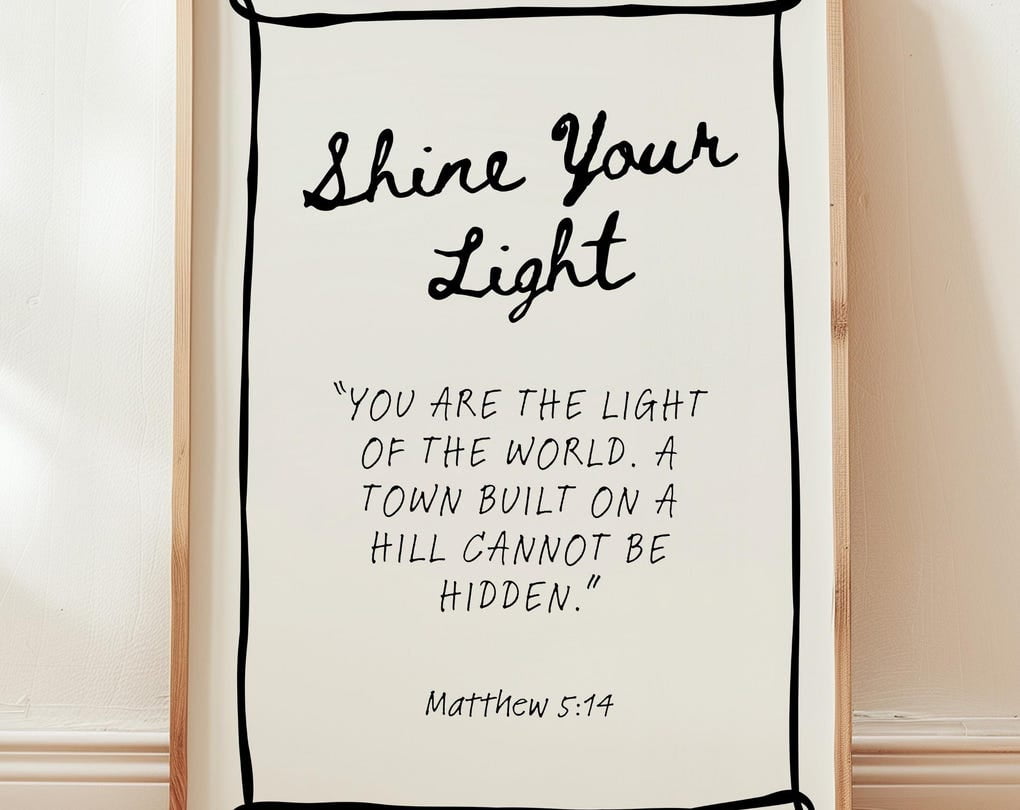 Shine Your
Light
"YOU ARE THE LIGHT
OF THE WORLD. A
TOWN BUILT ON A
HILL CANNOT BE
HIDDEN."
Matthew 5:14